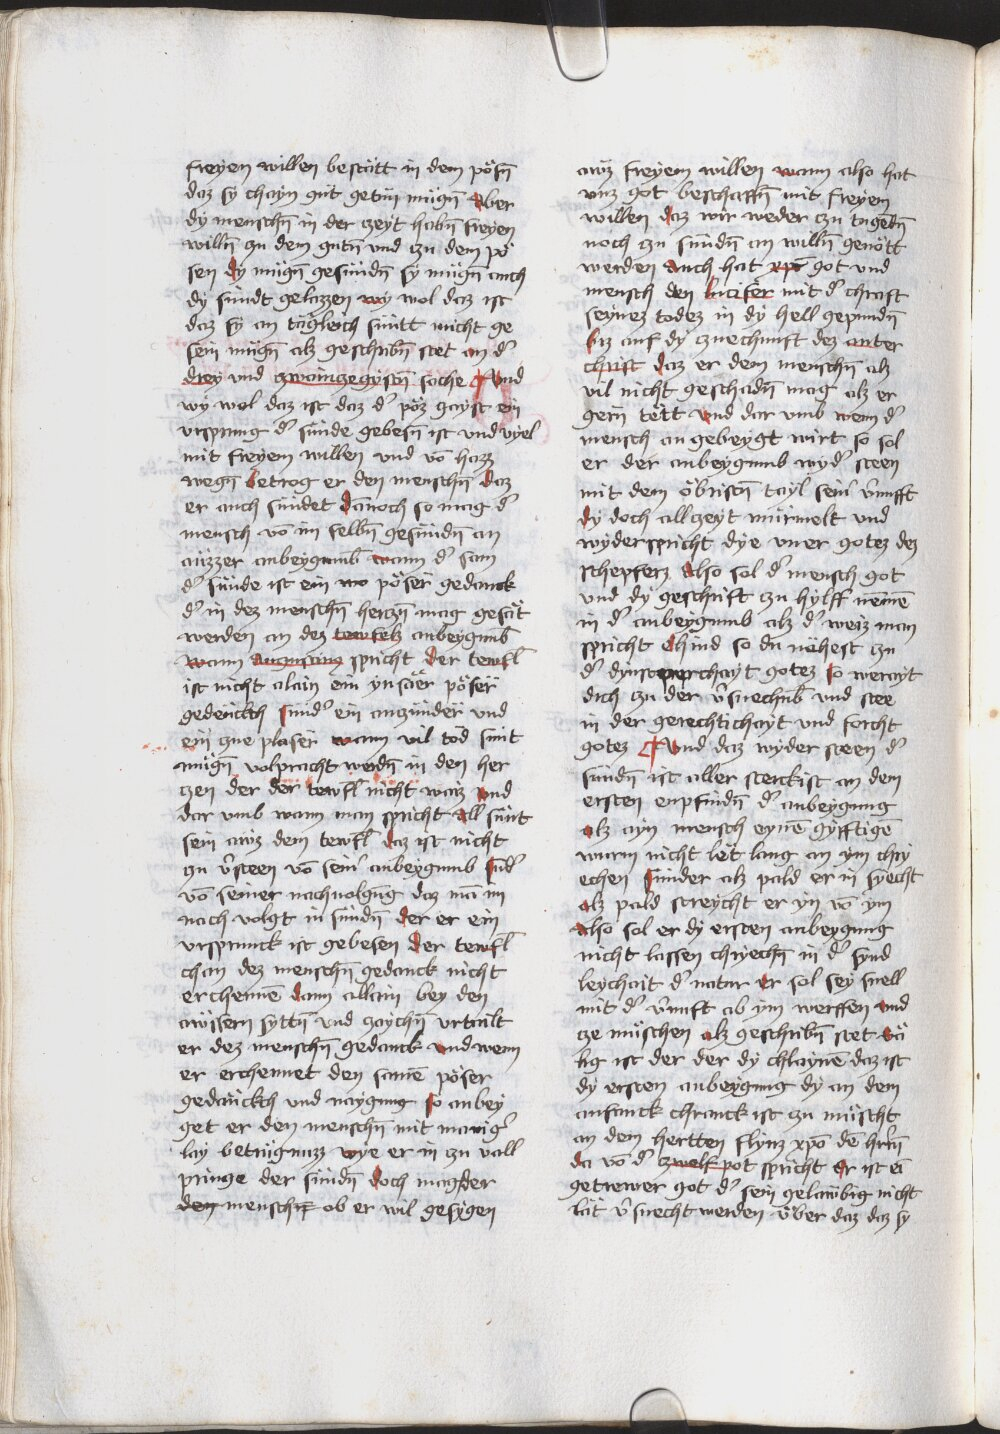 freyen willen bestätt in dem pösn̄
daz sy chayn gut getün mügn̄ aber
dy mensch̄n in der zeyt habn̄ freyen
willn̄ zu dem gutn̄ und zu dem pö
sen dy mügn̄ gesündn̄ sy mügn̄ auch
dy sündt gelazzen wy wol daz ist
daz sy an tägleich süntt nicht ge
sein mügn̄ alz geschribn̄ stet an d'
drey und zwainczegystn̄ sache Und
wy wol daz ist daz d' pöz gayst ein
ursprung d' sünde gebesn̄ ist und vyel
mit freyem willen und vō hazz
wegn̄ betrog er den menschn̄ daz
er auch sündet dānoch so mag d'
mensch vō im selbn̄ gesündn̄ an
aüzzer anbeygumb wann d' sam
d' sünde ist ein pöser gedanck
d' in dez menschn̄ herczn̄ mag gesät
werden an dez tewfelz anbeygūb
wann Augustinus spricht der tewfl
ist nicht alain ein ynsäer pöser
gedenckch sünd' ein anzünder und
ein zue plaser wann vil tod sünt
mügn̄ volpracht werdn̄ in den her
czen der der tewfl nicht waiz und
dar umb wann man spricht all sünt
sein awz dem tewfl daz ist nicht
zu v'steen vō sein' anbeygumb sūd'
vō seiner nachuolgūg daz mā im
nach volgt in sündn̄ der er ein
ursprunck ist gebesen der tewfl
chan dez menschn̄ gedanck nicht
erchennē dann allain bey den
awssern syttn̄ und zaychn̄ urtailt
er dez menschn̄ gedanck und wenn
er erchennet den samē pöser
gedänckch und naygung so anbey
get er den menschn̄ mit manig'
lay betrügnuzz wye er in zu vall
pringe der sündn̄ doch mag der
mensch ob er wil gesygen
awz freyem willen wann also hat
unz got beschaffn̄ mit freyen
willen daz wir weder zu tugedn̄
noch zu sündn̄ an willn̄ genött
werden Auch hat xp̄c got und
mensch den lucifer mit d' chraft
seynez todez in dy hell gepundn̄
biz auf dy zuechunft dez anter
christ daz er dem menschn̄ alz
vil nicht geschadn̄ mag alz er
gern tëtt und dar umb wenn d'
mensch an gebeygt wirt so sol
er der anbeygumb wyd' steen
mit dem öbristn̄ tayl sein' v'nufft
dy doch allzeyt mürmelt und
wyderspricht dye uner gotez dez
schepferz Also sol d' mensch got
und dy geschrift zu hylff nemē
in d' anbeygumb alz d' weiz man
spricht chind so du nähest zu
d' dynst gotez so berayt
dich zu der v'suechūb und stee
in der gerechtichayt und forcht
gotez Und daz wyder steen d'
sündn̄ ist aller sterckist an dem
ersten enpfindn̄ d' anbeygung
alz ayn mensch eynē gyfftigē
wurm nicht lët lang an ym chry
echen sünder alz pald er in syecht
alz pald streycht er yn vō ym
Also sol er dy ersten anbeygung
nicht lassen chryechn̄ in d' synd
leychait d' natur er sol sey snell
mit d' v'nuft ab ym werffen und
ze müschen alz geschribn̄ stet sä
lig ist der der dy chlaynē daz ist
dy ersten anbeygung dy an dem
anfanck chranck ist zu müscht
an dem hertten flynz xpō dē h'rn̄
da vō d' zwelfpot spricht Er ist eī
getrewer got d' sein gelawbig nicht
lät v'suecht werden über daz daz sy